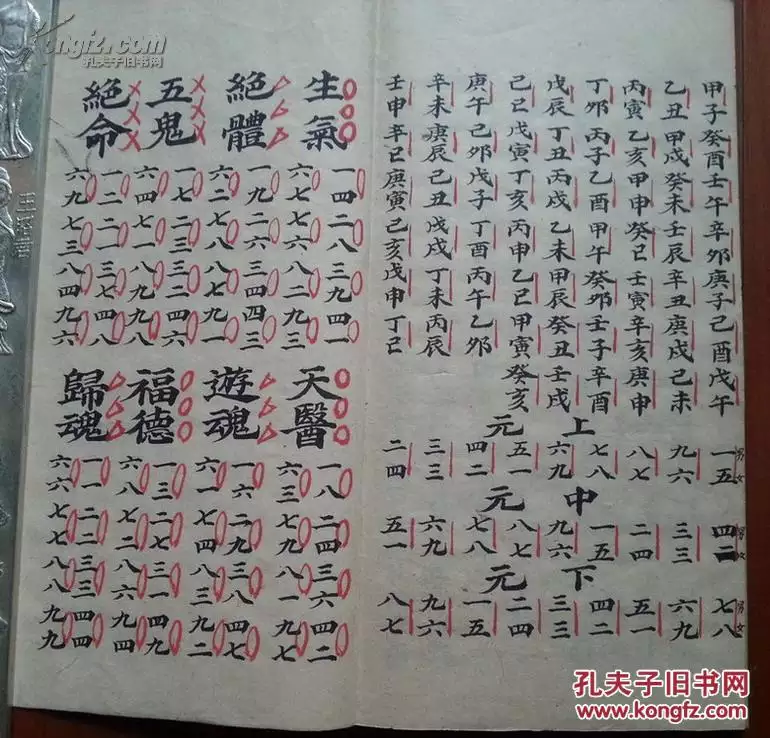 甲子癸酉壬午辛卯庚子己酉戊午
乙丑甲戌癸未壬辰辛丑庚戌己未
丙寅乙亥甲申癸巳壬寅辛亥庚申
丁卯丙子乙酉甲午癸卯壬子辛酉
戊辰丁丑丙戌乙未甲辰癸丑壬戌
己巳戊寅丁亥丙申乙巳甲寅癸亥
庚午己卯戊子丁酉丙午乙卯
辛未庚辰己丑戊戌丁未丙辰
壬申辛巳庚寅己亥戊申丁巳
上元
男女 一五 九六 八七 七八 六九 五一 四二 三三 二四
中元
男女 四二 三三 二四 一五 九六 八七 七八 六九 五一
下元
男女 七八 六九 五一 四二 三三 二四 一五 九六 八七
生氣
一四 二八 三九 四一
六七 七六 八二 九三
絕體
一九 二六 三四 四三
六二 七八 八七 九一
五鬼
一七 二三 三二 四六
六四 七一 八九 九八
絕命
一二 二一 三七 四八
六九 七三 八四 九六
天醫
一八 二四 三六 四二
六三 七九 八一 九七
遊魂
一六 二九 三八 四七
六一 七四 八三 九二
福德
一三 二七 三一 四九
六八 七二 八六 九四
歸魂
一一 二二 三三 四四
六六 七七 八八 九九
Kongfz.com
孔夫子旧书网
孔夫子旧书网
www.kongfz.com